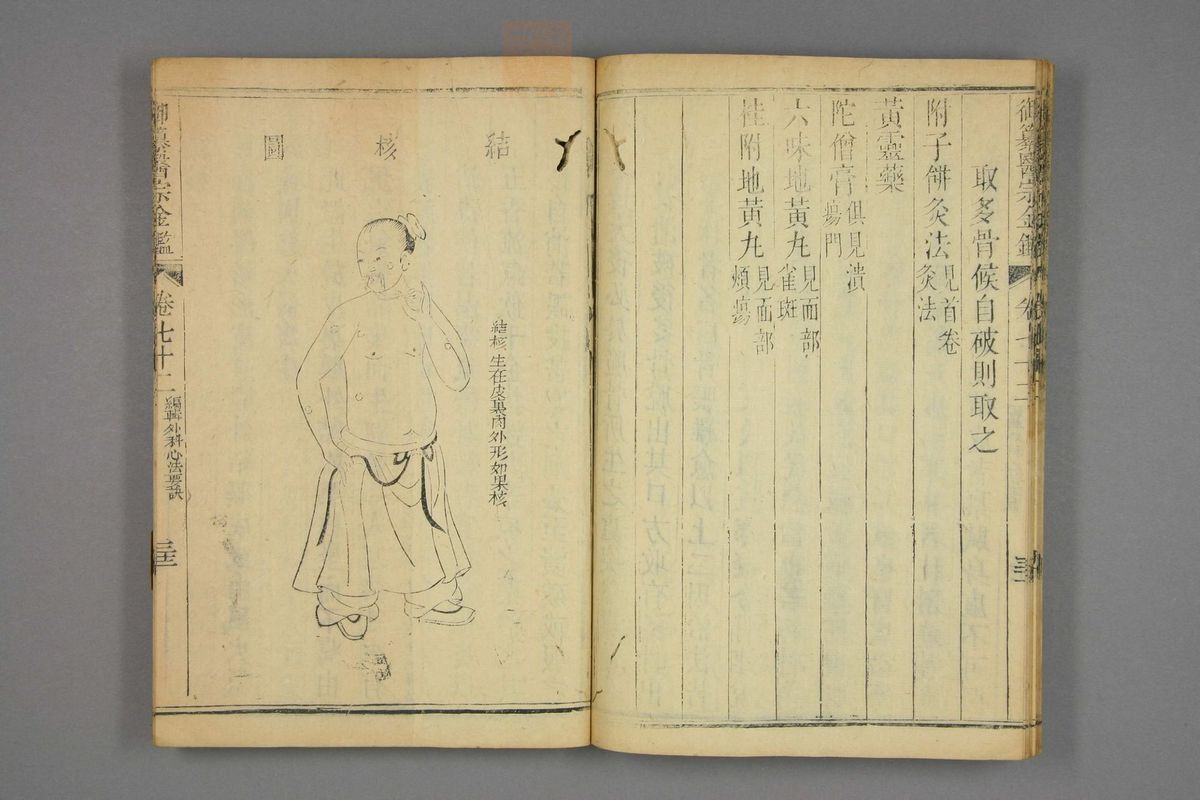 御纂醫宗金鑑
取多骨候自破則取之
附子餅灸法見首卷灸法
黃靈藥
陀僧膏俱見潰瘍門
六味地黃丸見面部雀斑
桂附地黃丸見面部頰瘍
結核圖
結核生在皮裏肉外形如果核
御纂醫宗金鑑
卷七十二
編輯外科心法要訣